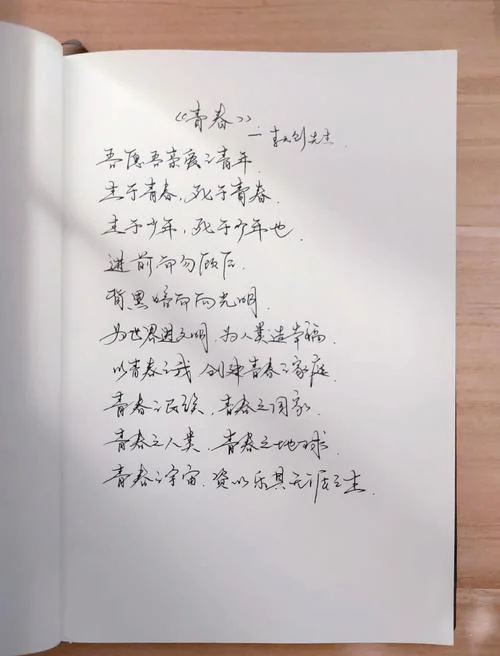 《青春》
—李大钊先生
吾愿吾亲爱之青年.
生于青春,死于青春.
生于少年,死于少年也.
进前而勿顾后.
背黑暗而向光明.
为世界进文明,为人类造幸福.
以青春之我 创建青春之家庭.
青春之民族,青春之国家.
青春之人类,青春之地球.
青春之宇宙,资以乐其无涯之生.